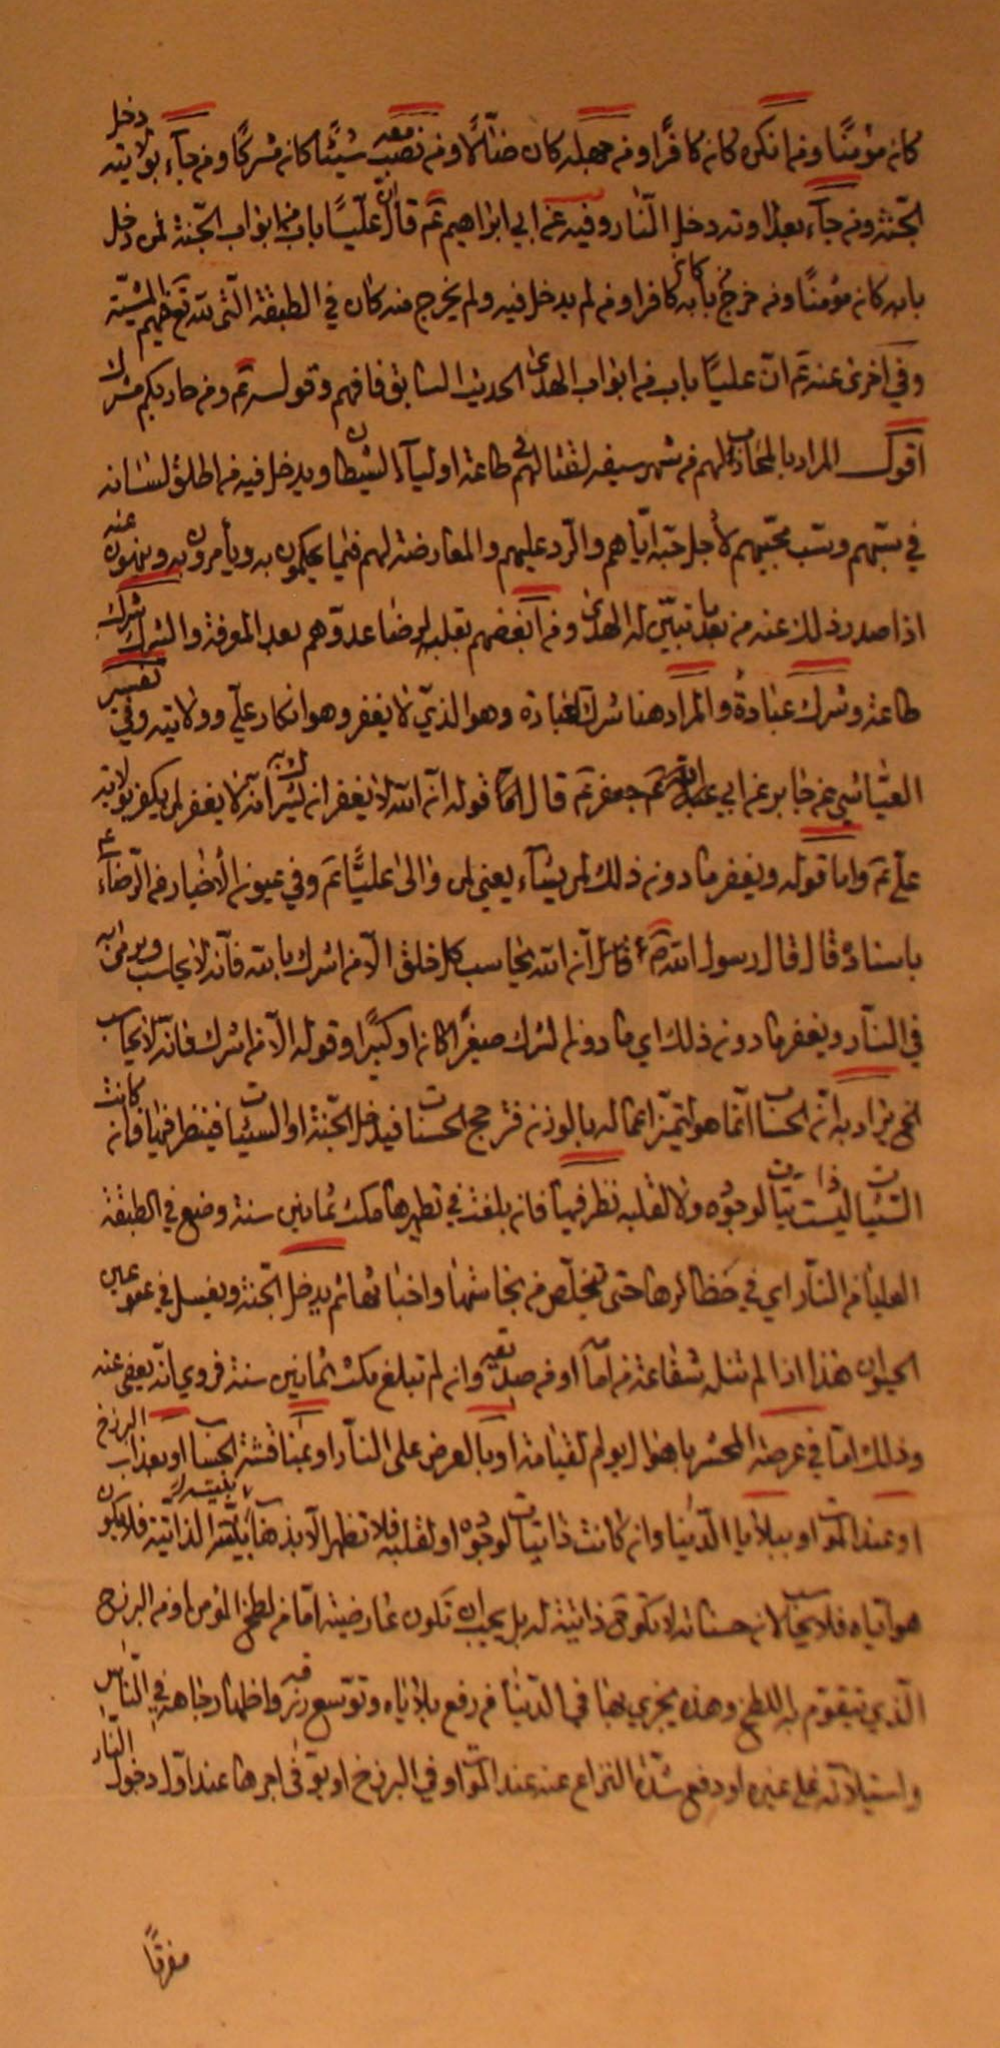 كان مؤمنًا ومن انكره كان كافرًا ومن جهله كان ضالًّا ومن نصب معه شيئًا كان مشركًا ومن جآء بولايته دخل
الجنّة ومن جآء بعداوته دخل النّار وفيه عن ابي ابراهيم عم قال انّ عليًّا باب من ابواب الجنّة فمن دخل
بابه كان مؤمنًا ومن خرج من بابه كان كافرا ومن لم يدخل فيه ولم يخرج منه كان في الطبقة الّتي لله تع فيهم المشيّة
وفي اخرى عنه عم انّ عليّا باب من ابواب الهدى الحديث السّابق فافهم وقوله عم ومن حاربكم مشرك
اقول المراد بالمحارب لهم من شهر سيفه لقتالهم في طاعة اوليآء الشيطان ويدخل فيه من اطلق لسانه
في سبّهم وسبّ محبّيهم لأجل حبّه ايّاهم والرّد عليهم والمعارضة لهم فيما يحكمون به ويأمرون به وينهون عنه
اذا صدر ذلك عنه من بعد ما تبيّن له الهدى ومن ابغضهم بقلبه او ضا عدوّهم بعد المعرفة والشرك شرك
طاعة وشرك عبادة والمراد هنا شرك العبادة وهو الذي لا يغفر وهو انكار عليّ وولايته وفي تفسير
العيّاشي عن جابر عن ابي جعفر عم قال امّا قوله انّ الله لا يغفر ان يشرك به انّه لا يغفر لمن يكفر بولاية
عليّ عم واما قوله ويغفر ما دون ذلك لمن يشآء يعني لمن والى عليًّا عم وفي عيون الأخبار عن الرّضا ع
باسناده قال قال رسول الله ص انّ الله يحاسب كلّ خلق الّا من اشرك بالله فانّه لا يحاسب ويؤمر به
في النّار ويغفر ما دون ذلك اي ما دون الشرك صغيرًا كان او كبيرًا وقوله الّا من اشرك فانّه لا يحاسب
الخ يراد به انّ الحساب انّما هو لتميّز اعماله بالوزن فترجح الحسنات فيدخل الجنّة او السيّئات فينظر فيها فان كانت
السّيّئات ليست ذاتيّات لوجوده ولا لقلبه نظر فيها فان بلغت في تطهيرها مكث ثمانين سنة وضع في الطبقة
العليا من النّار اي في حظائرها حتى تخلّص من نجاستها واخباثها ثم يدخل الجنّة ويغسل في عين
الحيوان هذا اذا لم تنله شفاعة من امام او من صديقه وان لم تبلغ مكث ثمانين سنة فروي انّه يعفى عنه
وذلك امّا في عرصة المحشر باهوال يوم القيامة او بالعرض على النّار او بمناقشة الحساب او بعذاب البرزخ
او عند الموت او ببلايا الدّنيا وان كانت ذاتيّات لوجوده او لقلبه فلا تطهر الّا بذهاب الذاتيّة فلا يكون
هو ايّاه فلا يحاسب لان حسناته لا تكون ذاتيّة له بل يجب ان تكون عارضيّة امّا من لطخ المؤمن او من البرزخ
الّذي يتقوّم به اللطخ وهذه يجزي بها في الدّنيا من رفع بلاياه وتوسّع رزقه واظهار جاهه في النّاس
واستيلائه على غيره او دفع شدّة النزاع عنه عند الموت او في البرزخ او يوقى اجرها عند اوّل دخول النّار
مفرقًا